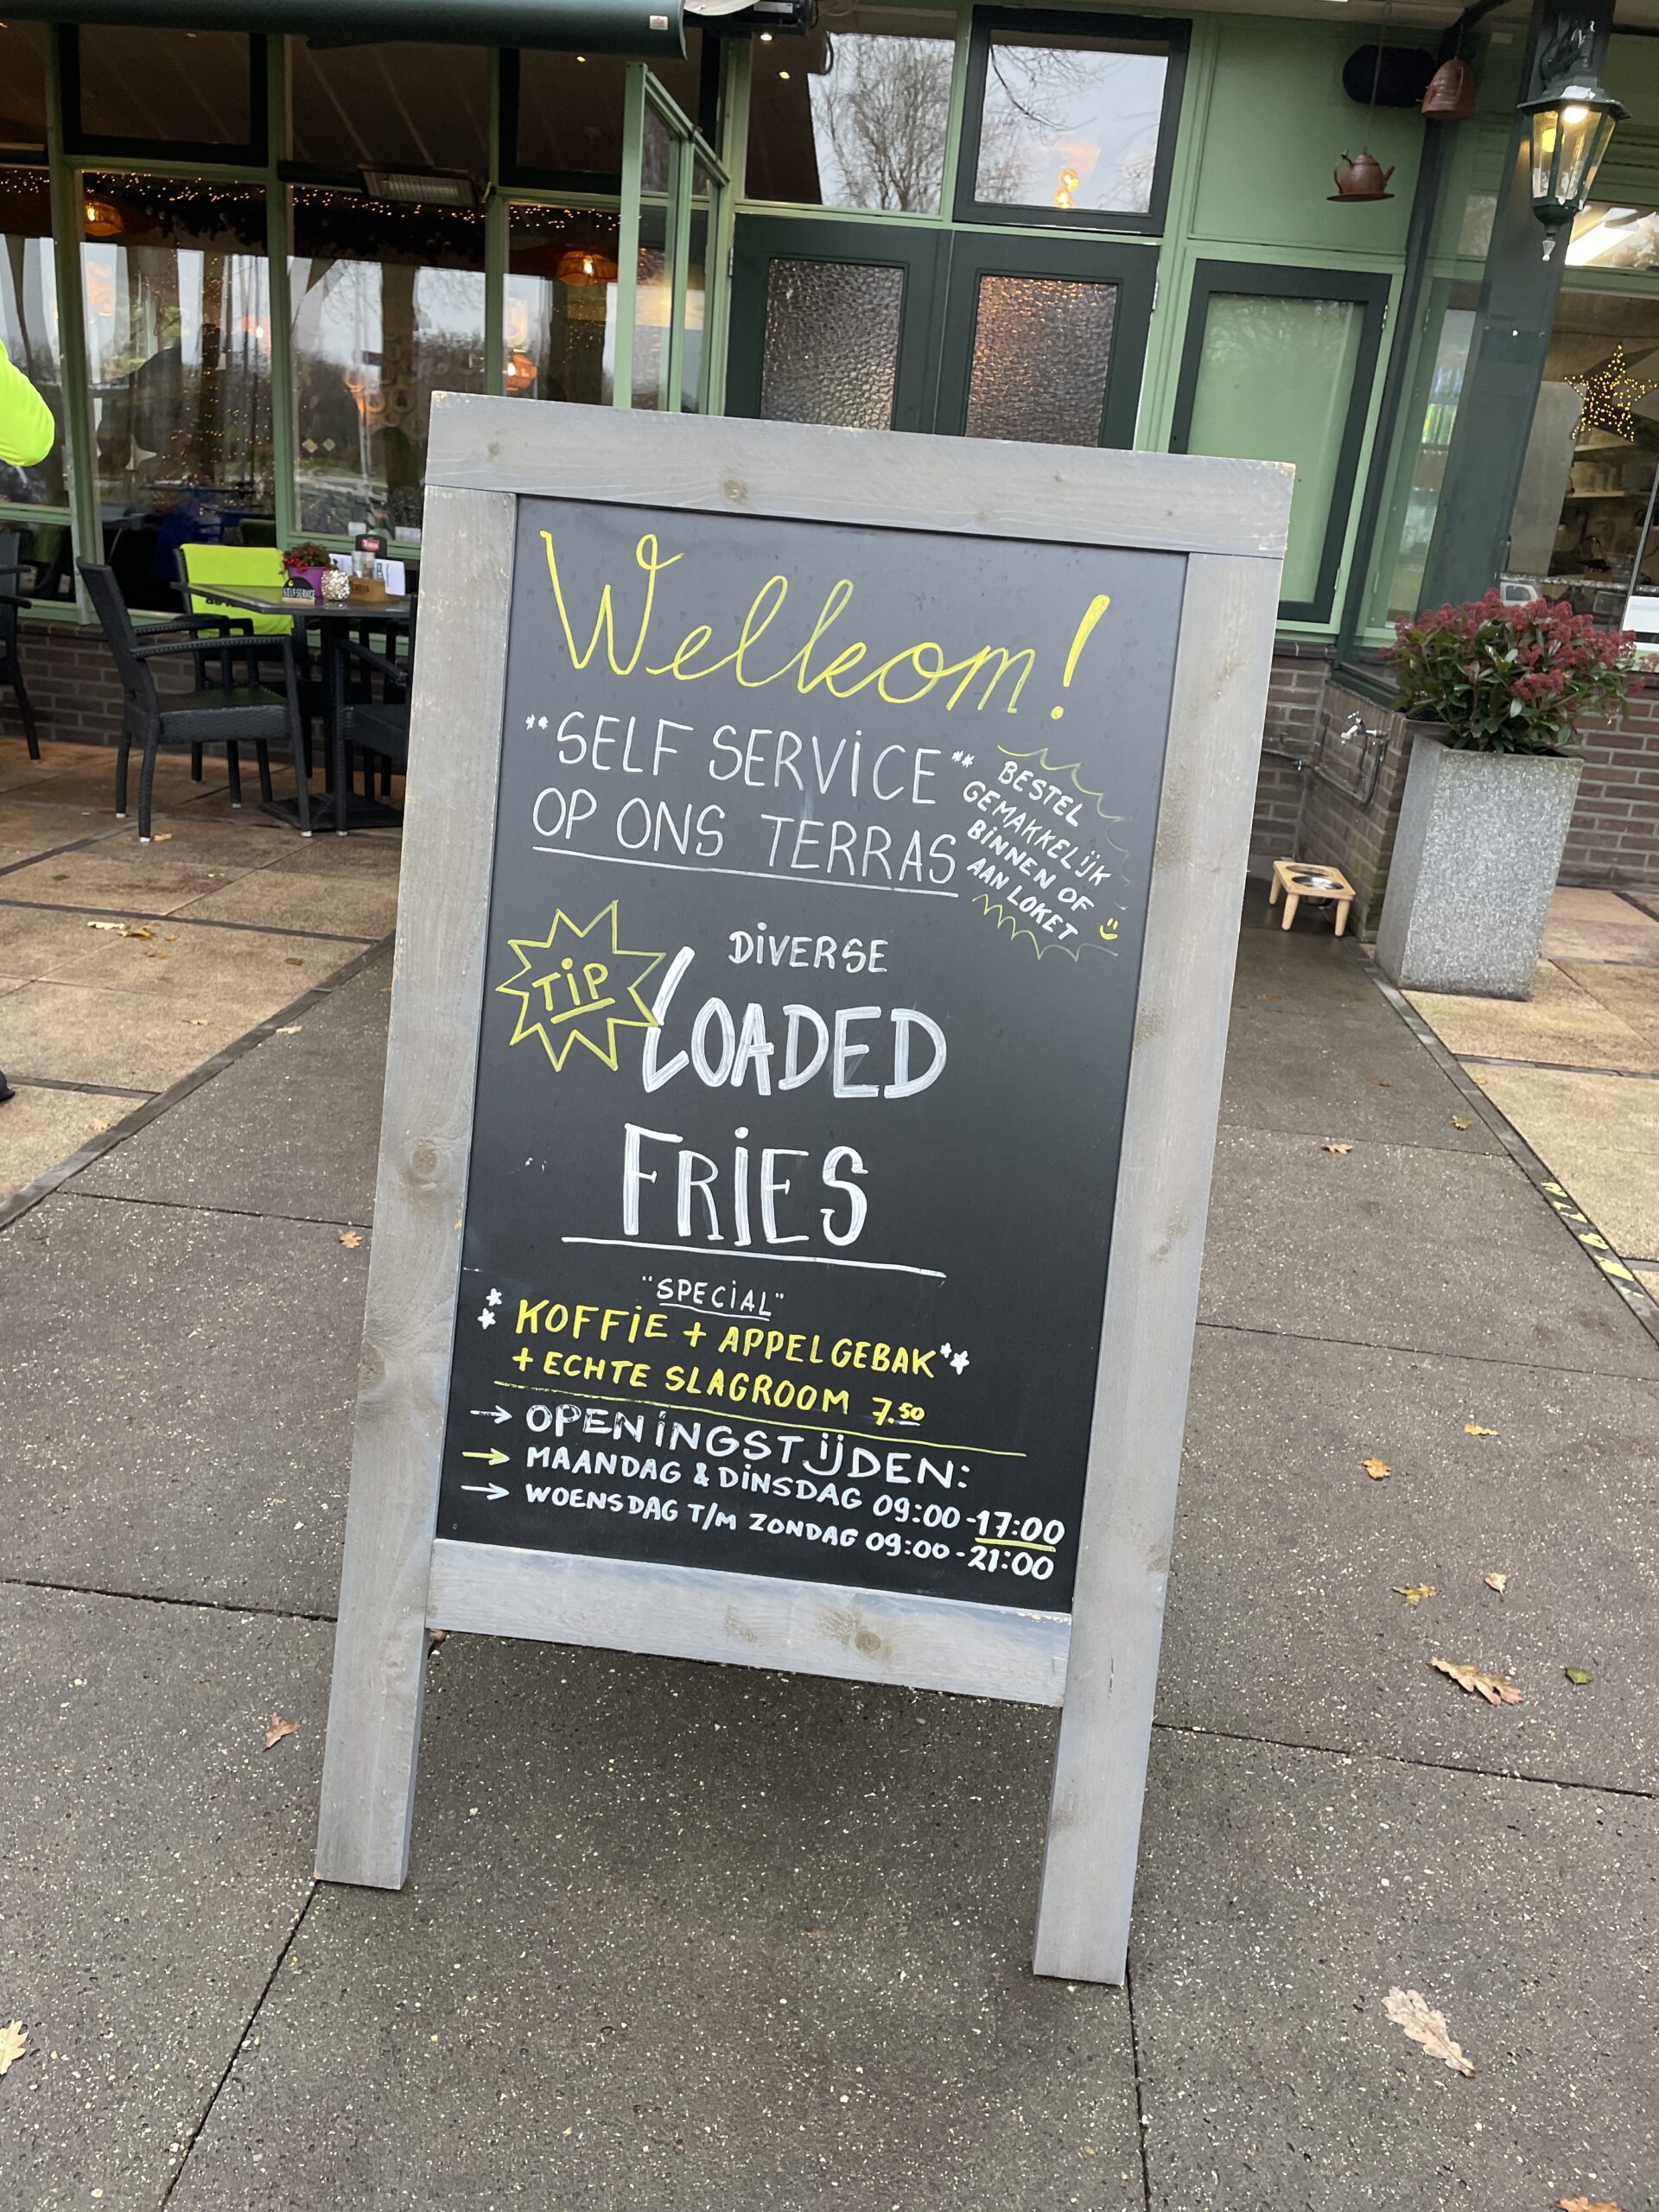 Welkom!
**SELF SERVICE**
OP ONS TERRAS
BESTEL
GEMAKKELIJK
BINNEN OF
AAN LOKET
TIP
DIVERSE
LOADED
FRIES
"SPECIAL"
** KOFFIE + APPELGEBAK**
+ ECHTE SLAGROOM 7.50
→ OPENINGSTIJDEN:
→ MAANDAG & DINSDAG 09:00-17:00
→ WOENSDAG T/M ZONDAG 09:00-21:00
SELF SERVICE